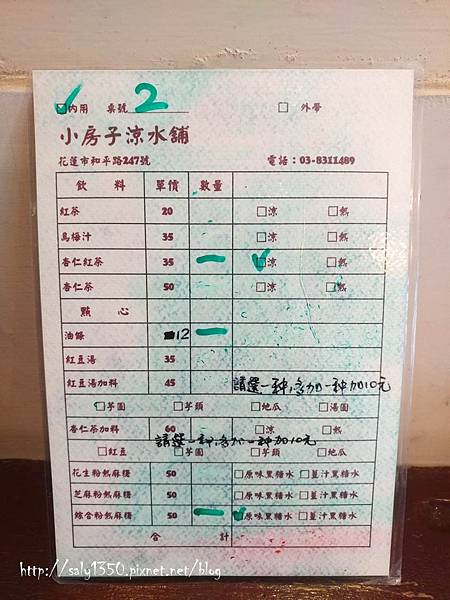 ☑內用 桌號 2 ☐ 外帶
小房子涼水舖
花蓮市和平路247號 電話：03-8311489
飲 料 單價 數量
紅茶 20 ☐涼 ☐熱
烏梅汁 35 ☐涼 ☐熱
杏仁紅茶 35 一 ☑涼 ☐熱
杏仁茶 50 ☐涼 ☐熱
點 心
油條 12 一
紅豆湯 35
紅豆湯加料 45 請選一種,多加一種加10元
☐芋圓 ☐芋頭 ☐地瓜 ☐湯圓
杏仁茶加料 60 ☐涼 ☐熱
請選一種,多加一種加10元
☐紅豆 ☐芋圓 ☐芋頭 ☐地瓜
花生粉熱麻糬 50 ☐原味黑糖水 ☐薑汁黑糖水
芝麻粉熱麻糬 50 ☐原味黑糖水 ☐薑汁黑糖水
綜合粉熱麻糬 50 一 ☑原味黑糖水 ☐薑汁黑糖水
合 計
http://saly1350.pixnet.net/blog